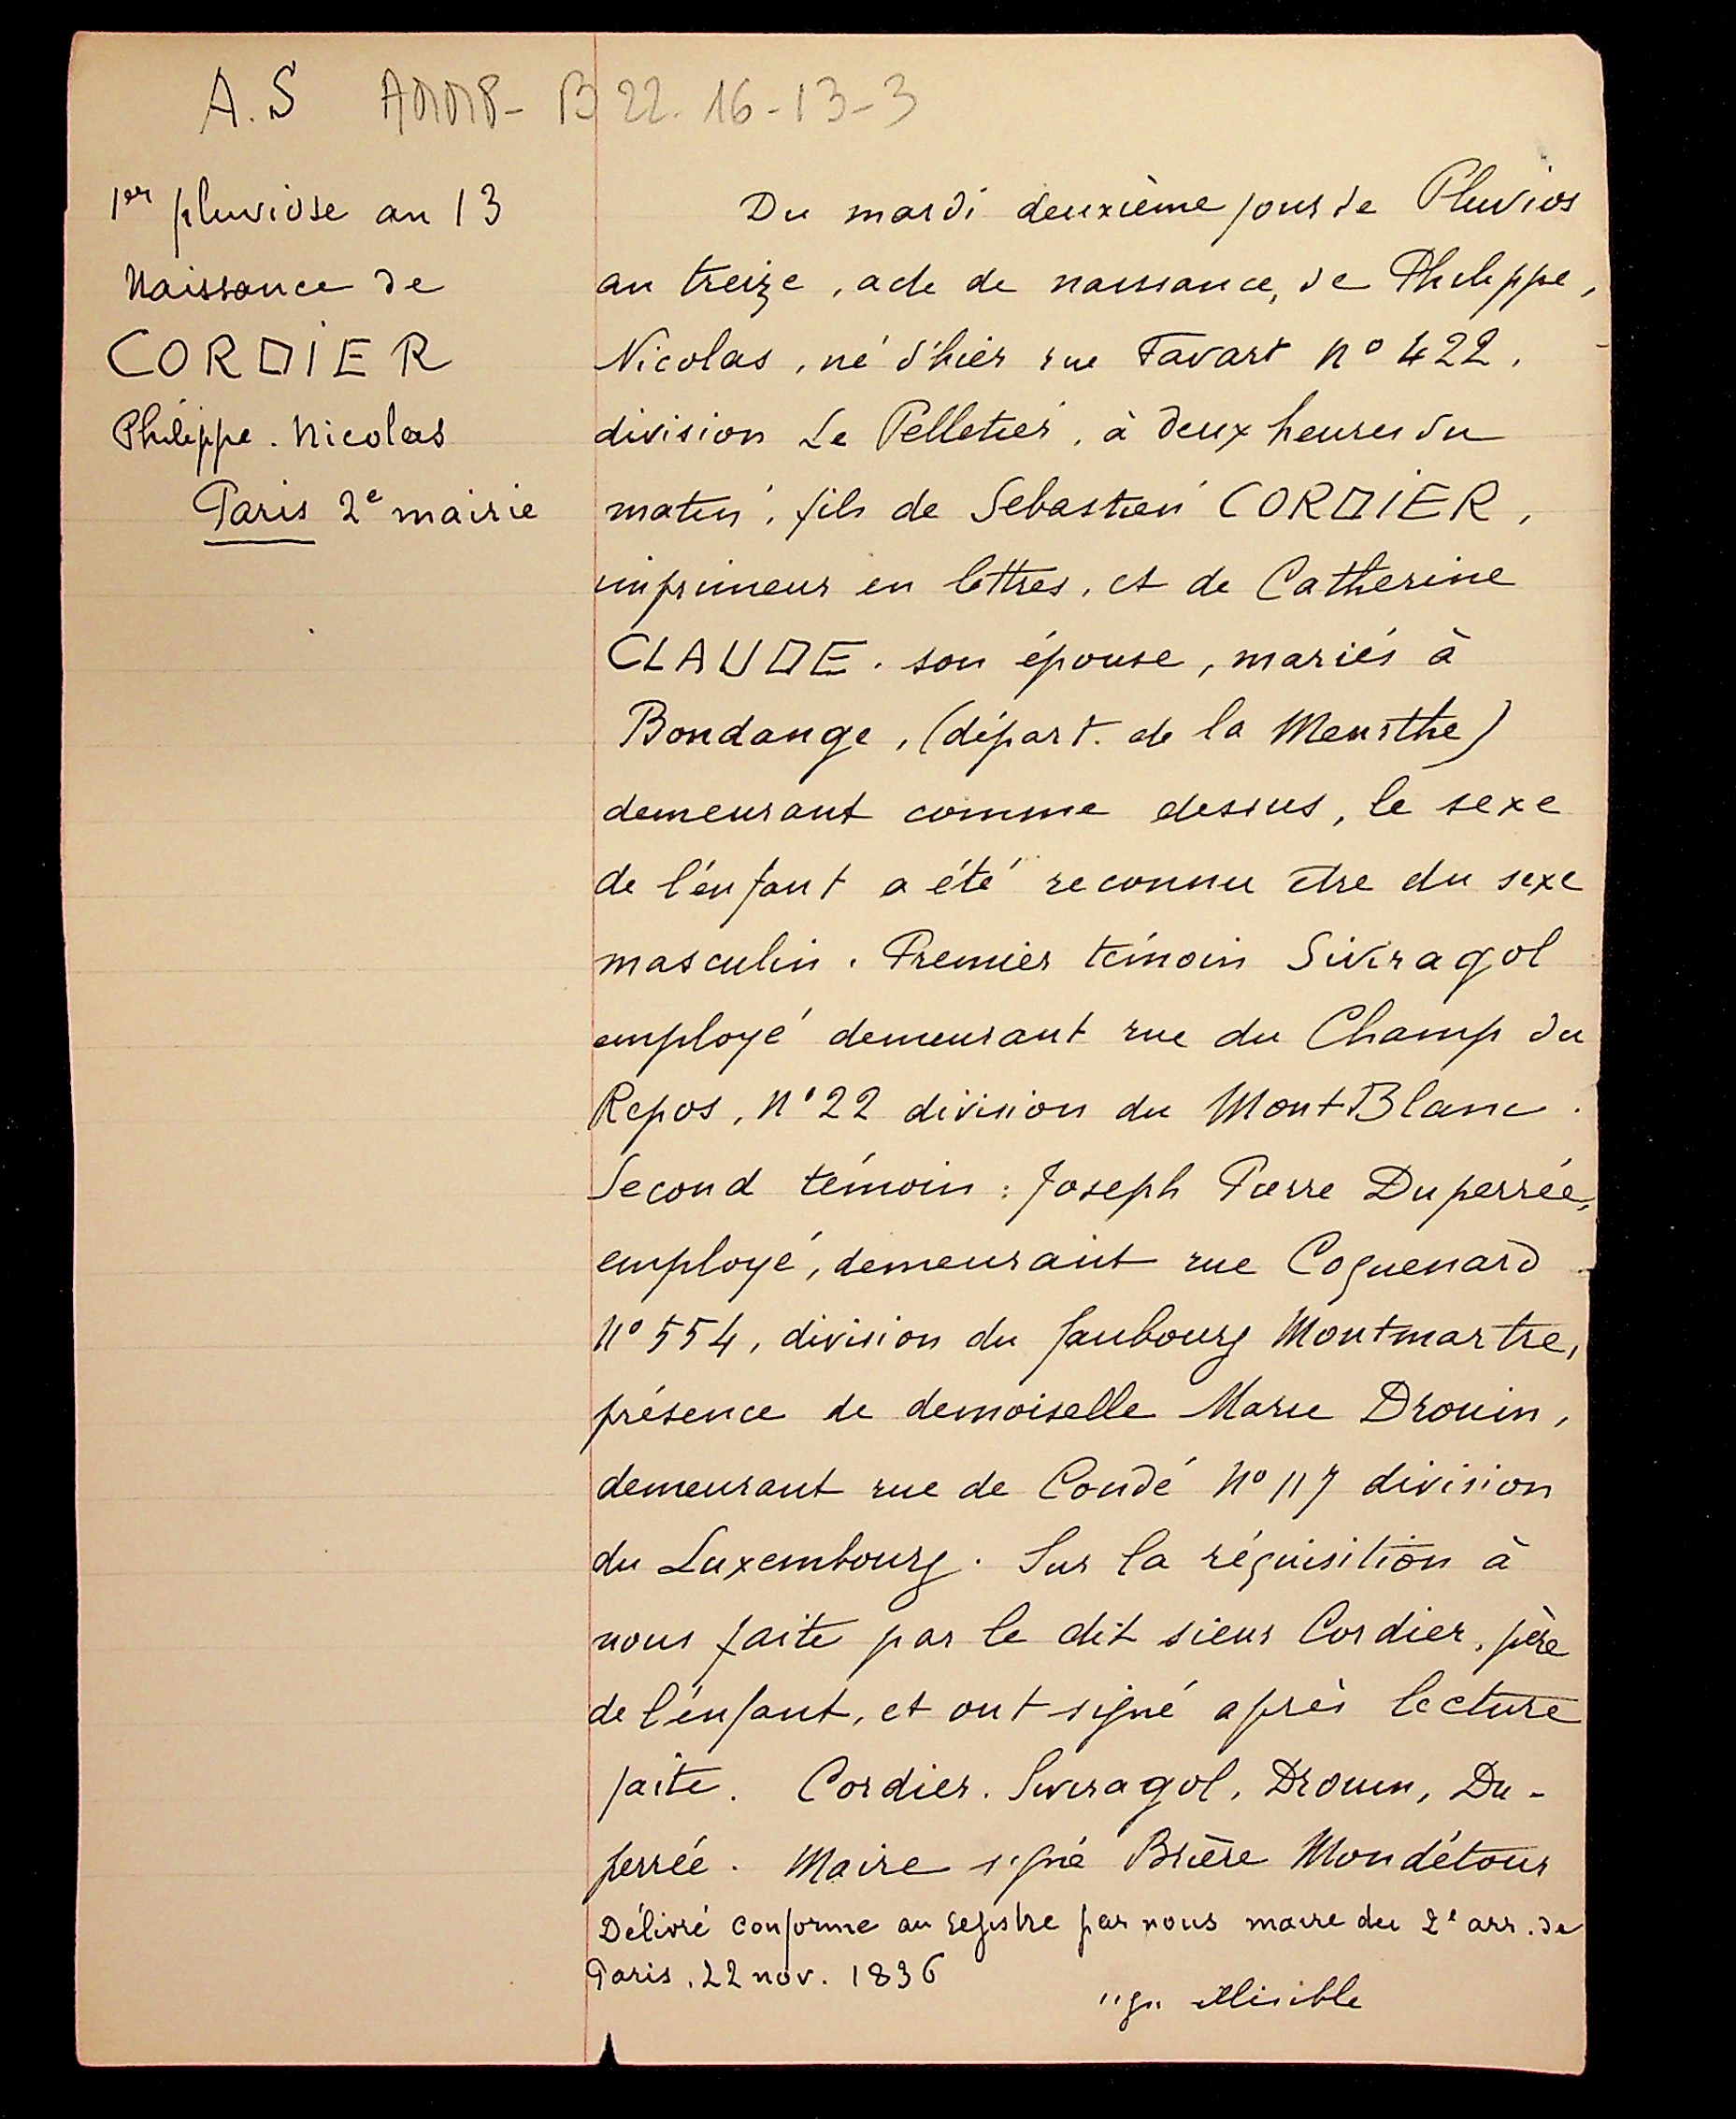 A.S
B 22. 16-13-3
1er pluviose an 13
Naissance de
CORDIER
Philippe. Nicolas
Paris 2e mairie
Du mardi deuxième jour de Pluvios
an treize, acte de naissance, de Philippe,
Nicolas, né d'hier rue Favart n° 422,
division Le Pelletier, à deux heures du
matin, fils de Sebastien CORDIER,
imprimeur en lettres, et de Catherine
CLAUDE. son épouse, mariés à
Bondange, (départ. de la Meurthe)
demeurant comme dessus, le sexe
de l'enfant a été reconnu être du sexe
masculin. Premier témoin Siviragol
employé demeurant rue du Champ du
Repos, N°22 division du Mont Blanc.
Second témoin : Joseph Pierre Duperrée,
employé, demeurant rue Coquenard
N° 554, division du faubourg Montmartre,
présence de demoiselle Marie Drouin,
demeurant rue de Condé N° 117 division
du Luxembourg. Sur la réquisition à
nous faite par le dit sieur Cordier, père
de l'enfant, et ont signé après lecture
faite. Cordier. Siviragol, Drouin, Du-
perrée. Maire signé Brière Mondétour
Délivré conforme au registre par nous maire du 2e arr. de
Paris. 22 nov. 1836
illisible